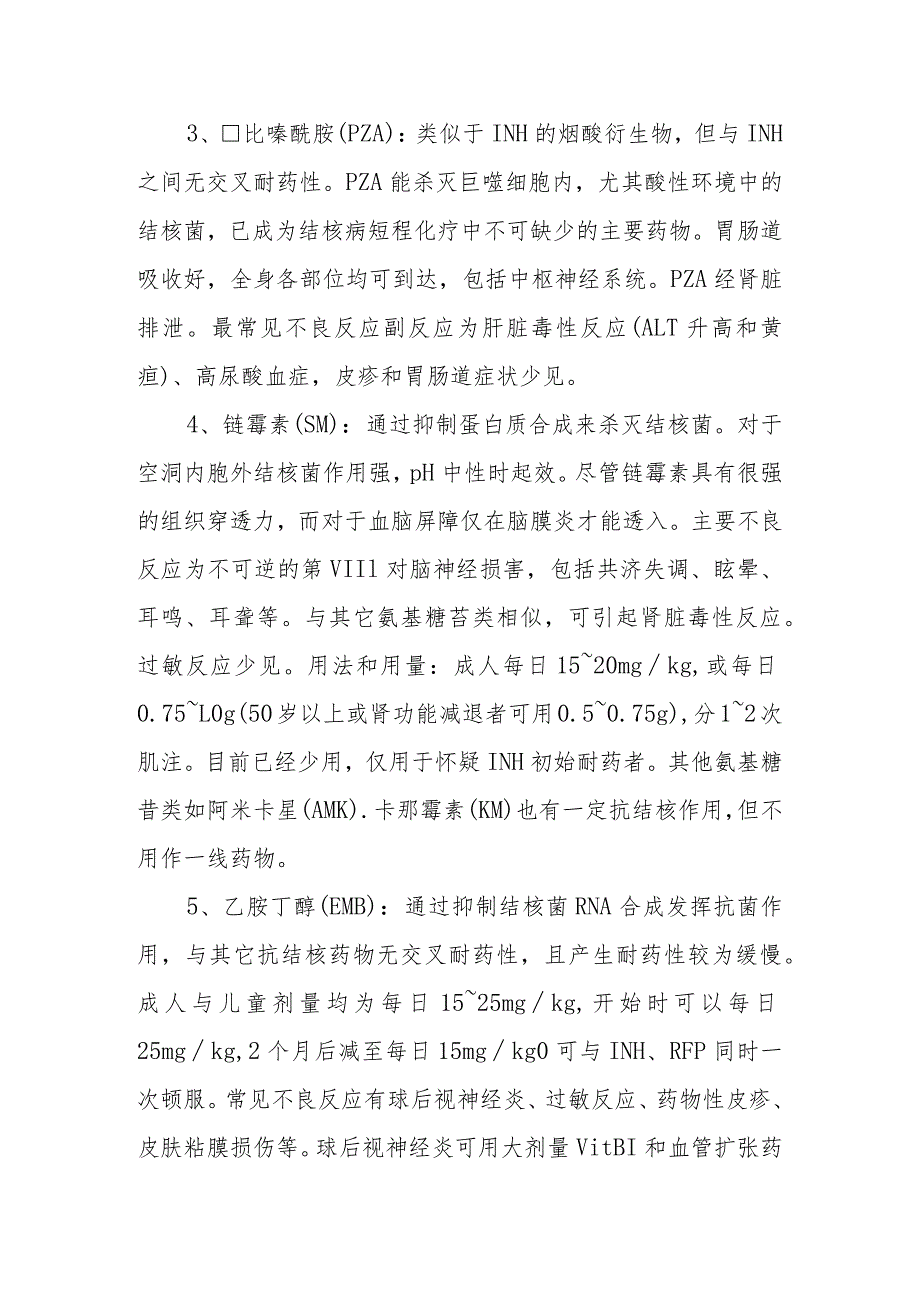 3、□比嗪酰胺(PZA):类似于INH的烟酸衍生物,但与INH
之间无交叉耐药性。PZA能杀灭巨噬细胞内,尤其酸性环境中的
结核菌,已成为结核病短程化疗中不可缺少的主要药物。胃肠道
吸收好,全身各部位均可到达,包括中枢神经系统。PZA经肾脏
排泄。最常见不良反应副反应为肝脏毒性反应(ALT升高和黄
疸)、高尿酸血症,皮疹和胃肠道症状少见。
4、链霉素(SM):通过抑制蛋白质合成来杀灭结核菌。对于
空洞内胞外结核菌作用强,pH中性时起效。尽管链霉素具有很强
的组织穿透力,而对于血脑屏障仅在脑膜炎才能透入。主要不良
反应为不可逆的第VIIl对脑神经损害,包括共济失调、眩晕、
耳鸣、耳聋等。与其它氨基糖苔类相似,可引起肾脏毒性反应。
过敏反应少见。用法和用量:成人每日15~20mg/kg,或每日
0.75~L0g(50岁以上或肾功能减退者可用0.5~0.75g),分1~2次
肌注。目前已经少用,仅用于怀疑INH初始耐药者。其他氨基糖
昔类如阿米卡星(AMK).卡那霉素(KM)也有一定抗结核作用,但不
用作一线药物。
5、乙胺丁醇(EMB):通过抑制结核菌RNA合成发挥抗菌作
用,与其它抗结核药物无交叉耐药性,且产生耐药性较为缓慢。
成人与儿童剂量均为每日15~25mg/kg,开始时可以每日
25mg/kg,2个月后减至每日15mg/kg0可与INH、RFP同时一
次顿服。常见不良反应有球后视神经炎、过敏反应、药物性皮疹、
皮肤粘膜损伤等。球后视神经炎可用大剂量VitBI和血管扩张药